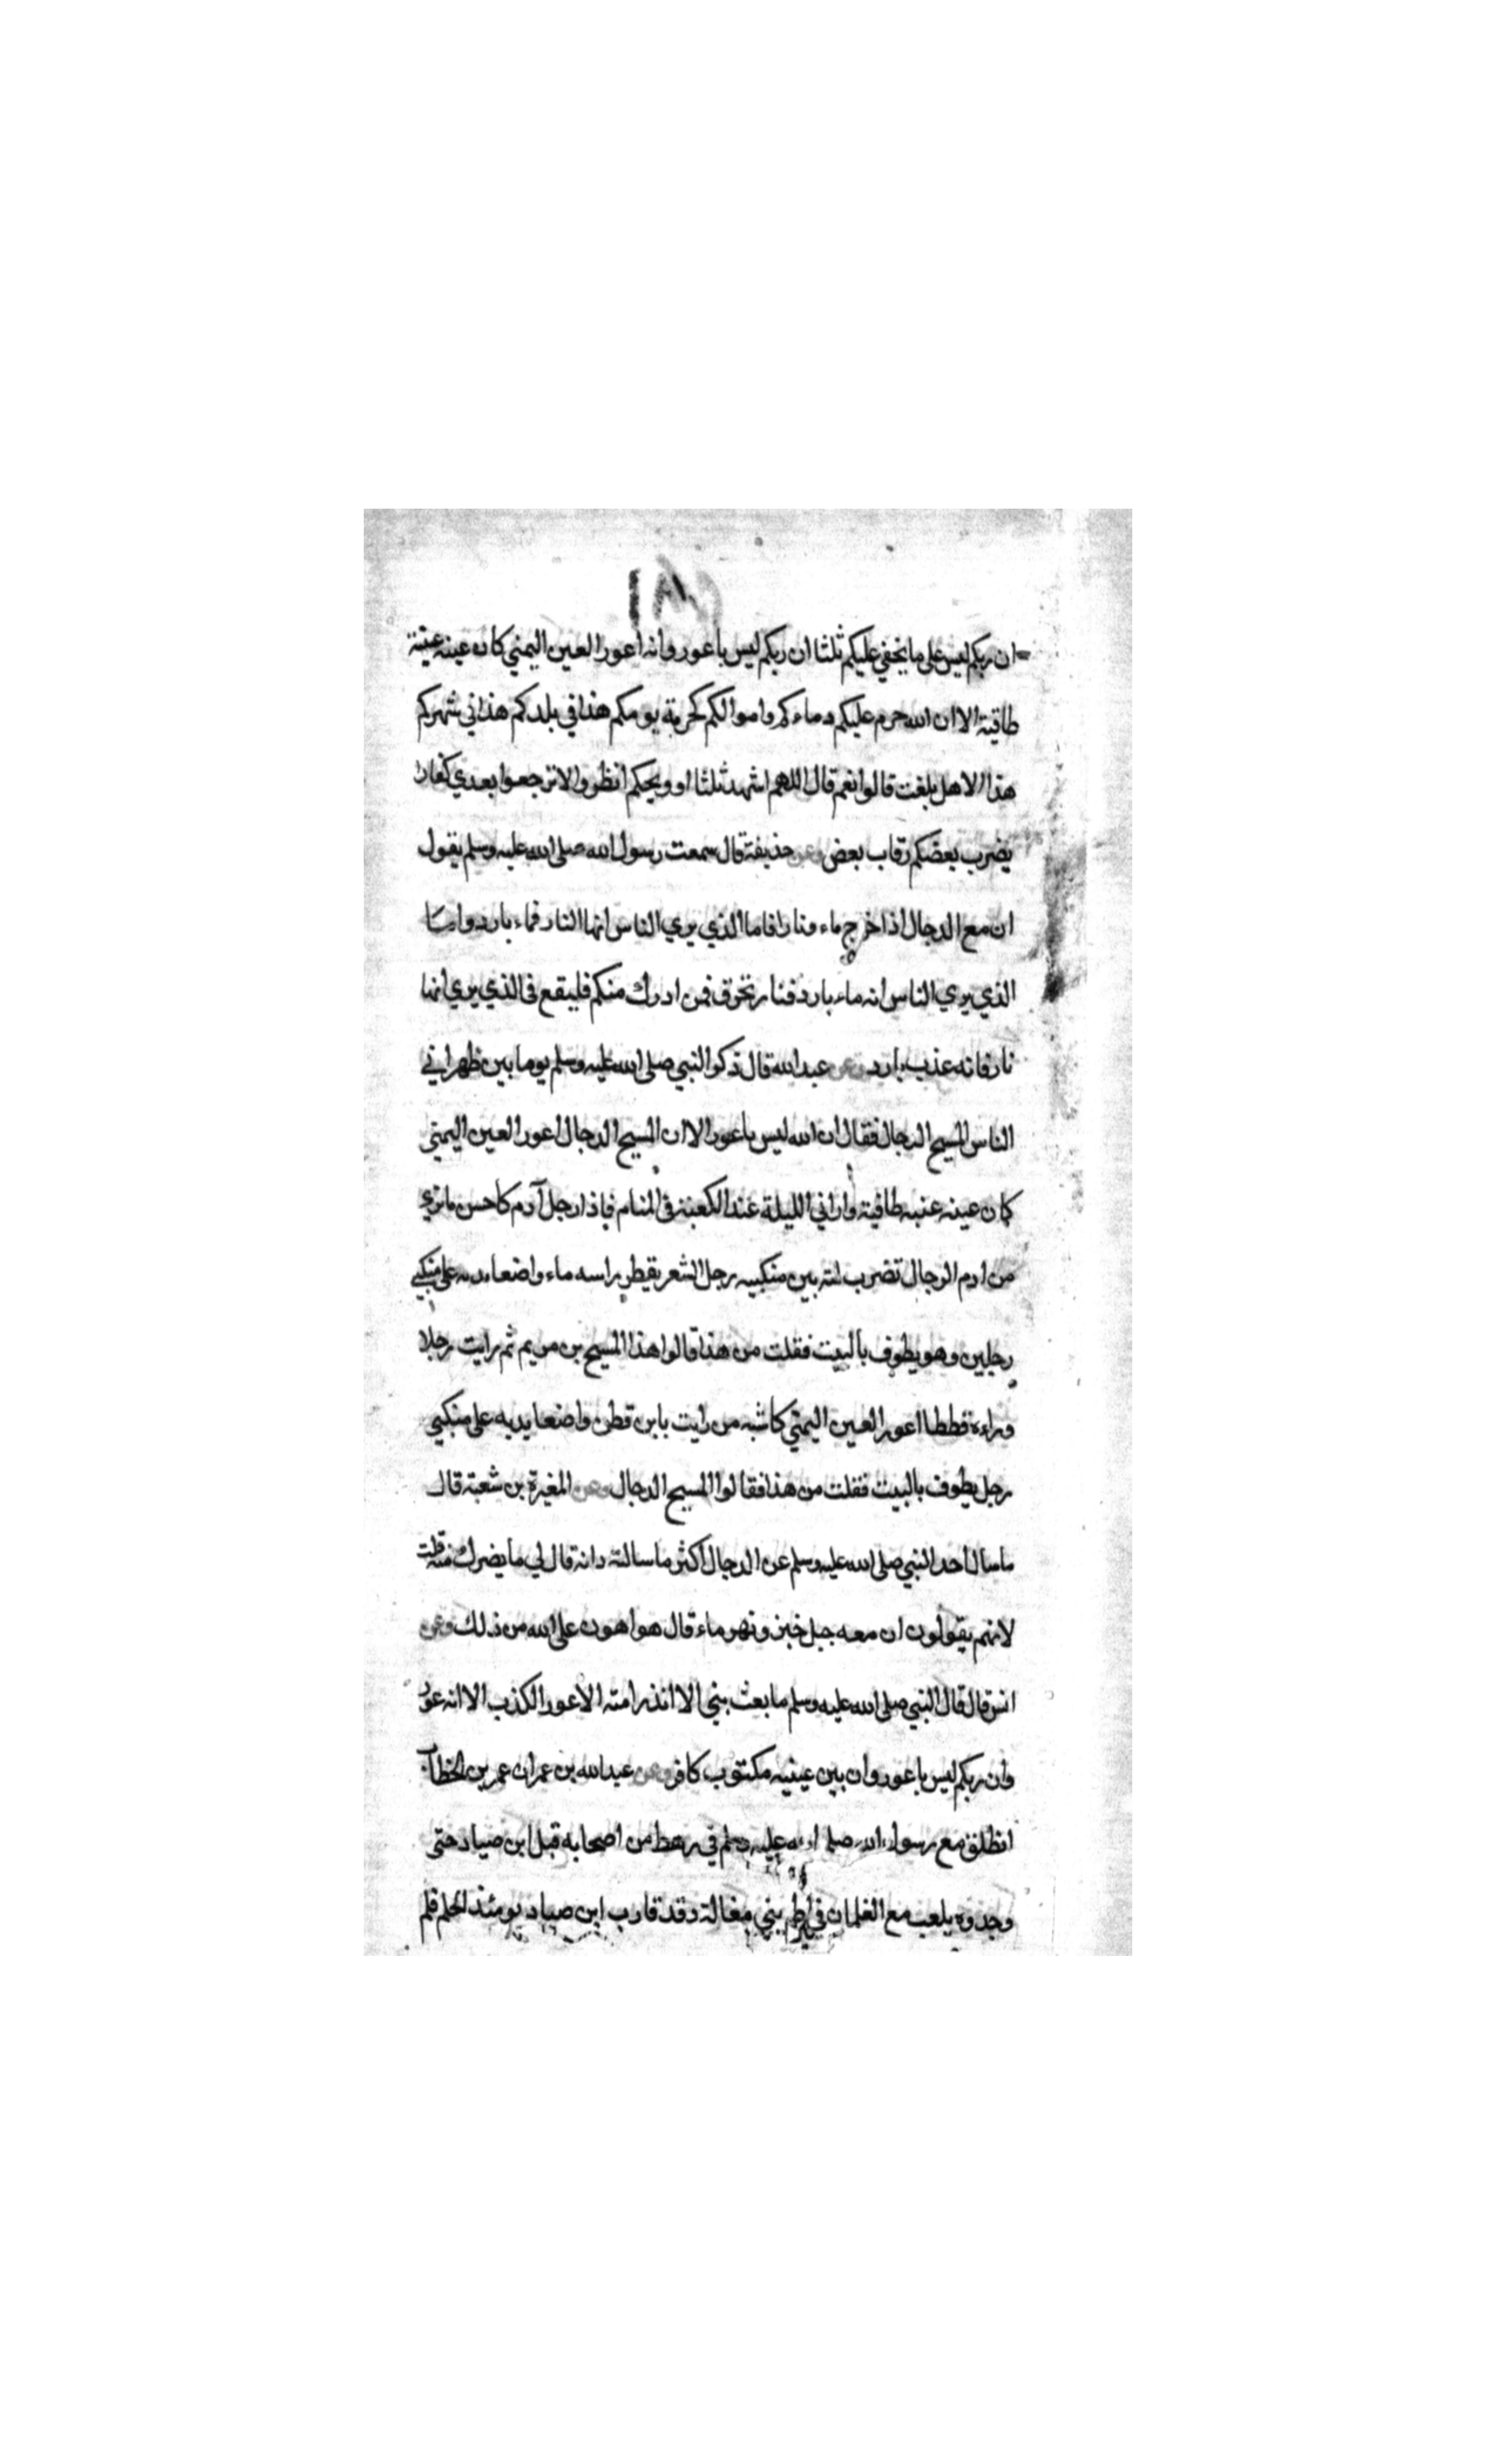 ان ربكم ليس على ما يخفي عليكم ثلثا ان ربكم ليس باعور وانه اعور العين اليمني كان عينه عنبة
طافية الا ان الله حرم عليكم دماءكم واموالكم كحرمة يومكم هذا في بلدكم هذا في شهركم
هذا الا هل بلغت قالوا نعم قال اللهم اشهد ثلثا او ويحكم انظروا لا ترجعوا بعدي كفارا
يضرب بعضكم رقاب بعض وعن حذيفة قال سمعت رسول الله صلى الله عليه وسلم يقول
ان مع الدجال اذا خرج ماء ونارا فاما الذي يري الناس انها النار فماء بارد واما
الذي يري الناس انه ماء بارد فنار تحرق فمن ادرك منكم فليقع في الذي يري انها
نار فانه عذب بارد وعن عبد الله قال ذكر النبي صلى الله عليه وسلم يوما بين ظهراني
الناس المسيح الدجال فقال ان الله ليس باعور الا ان المسيح الدجال اعور العين اليمني
كان عينه عنبه طافية واراني الليلة عند الكعبة في المنام فاذا رجل آدم كاحسن ما تري
من ادم الرجال تضرب لمته بين منكبيه رجل الشعر يقطر راسه ماء واضعا يديه على منكبي
رجلين وهو يطوف بالبيت فقلت من هذا قالوا هذا المسيح بن مريم ثم رايت رجلا
وراءه قططا اعور العين اليمني كاشبه من رايت بابن قطن واضعا يديه على منكبي
رجل يطوف بالبيت فقلت من هذا فقالوا المسيح الدجال وعن المغيرة بن شعبة قال
ما سال احد النبي صلى الله عليه وسلم عن الدجال اكثر ما سالته وانه قال لي ما يضرك منه قلت
لانهم يقولون ان معه جبل خبز ونهر ماء قال هو اهون على الله من ذلك وعن
انس قال قال النبي صلى الله عليه وسلم ما بعث بني الا انذر امته الاعور الكذب الا انه عور
وان ربكم ليس باعور وان بين عينيه مكتوب كافر وعن عبد الله بن عمر ان عمر بن الخطاب
انطلق مع رسول الله صلى الله عليه وسلم في رهط من اصحابه قبل ابن صياد حتى
وجدوه يلعب مع الغلمان في اطم بني مغالة وقد قارب ابن صياد يومئذ الحلم فلم